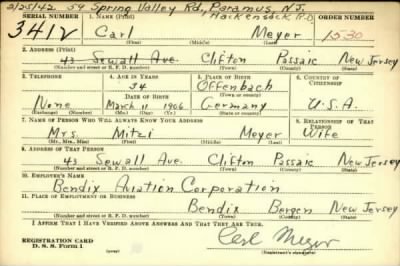 2/25/42. 59 Spring Valley Rd., Paramus, N.J.
Hackensack, R.D.
SERIAL NUMBER 1. NAME (Print) ORDER NUMBER
3412 Carl Meyer 1530
(First) (Middle) (Last)
2. ADDRESS (Print)
43 Sewall Ave. Clifton Passaic New Jersey
(Number and street or R. F. D. number) (Town) (County) (State)
3. TELEPHONE 4. AGE IN YEARS 5. PLACE OF BIRTH 6. COUNTRY OF CITIZENSHIP
34 Offenbach
DATE OF BIRTH (Town or county)
None March 11 1906 Germany U.S.A.
(Exchange) (Number) (Mo.) (Day) (Yr.) (State or country)
7. NAME OF PERSON WHO WILL ALWAYS KNOW YOUR ADDRESS 8. RELATIONSHIP OF THAT PERSON
Mrs. Mitzi Meyer Wife
(Mr., Mrs., Miss) (First) (Middle) (Last)
9. ADDRESS OF THAT PERSON
43 Sewall Ave. Clifton Passaic New Jersey
(Number and street or R. F. D. number) (Town) (County) (State)
10. EMPLOYER'S NAME
Bendix Aviation Corporation
11. PLACE OF EMPLOYMENT OR BUSINESS
Bendix Bergen New Jersey
(Number and street or R. F. D. number) (Town) (County) (State)
I AFFIRM THAT I HAVE VERIFIED ABOVE ANSWERS AND THAT THEY ARE TRUE.
REGISTRATION CARD
D. S. S. Form 1
Carl Meyer